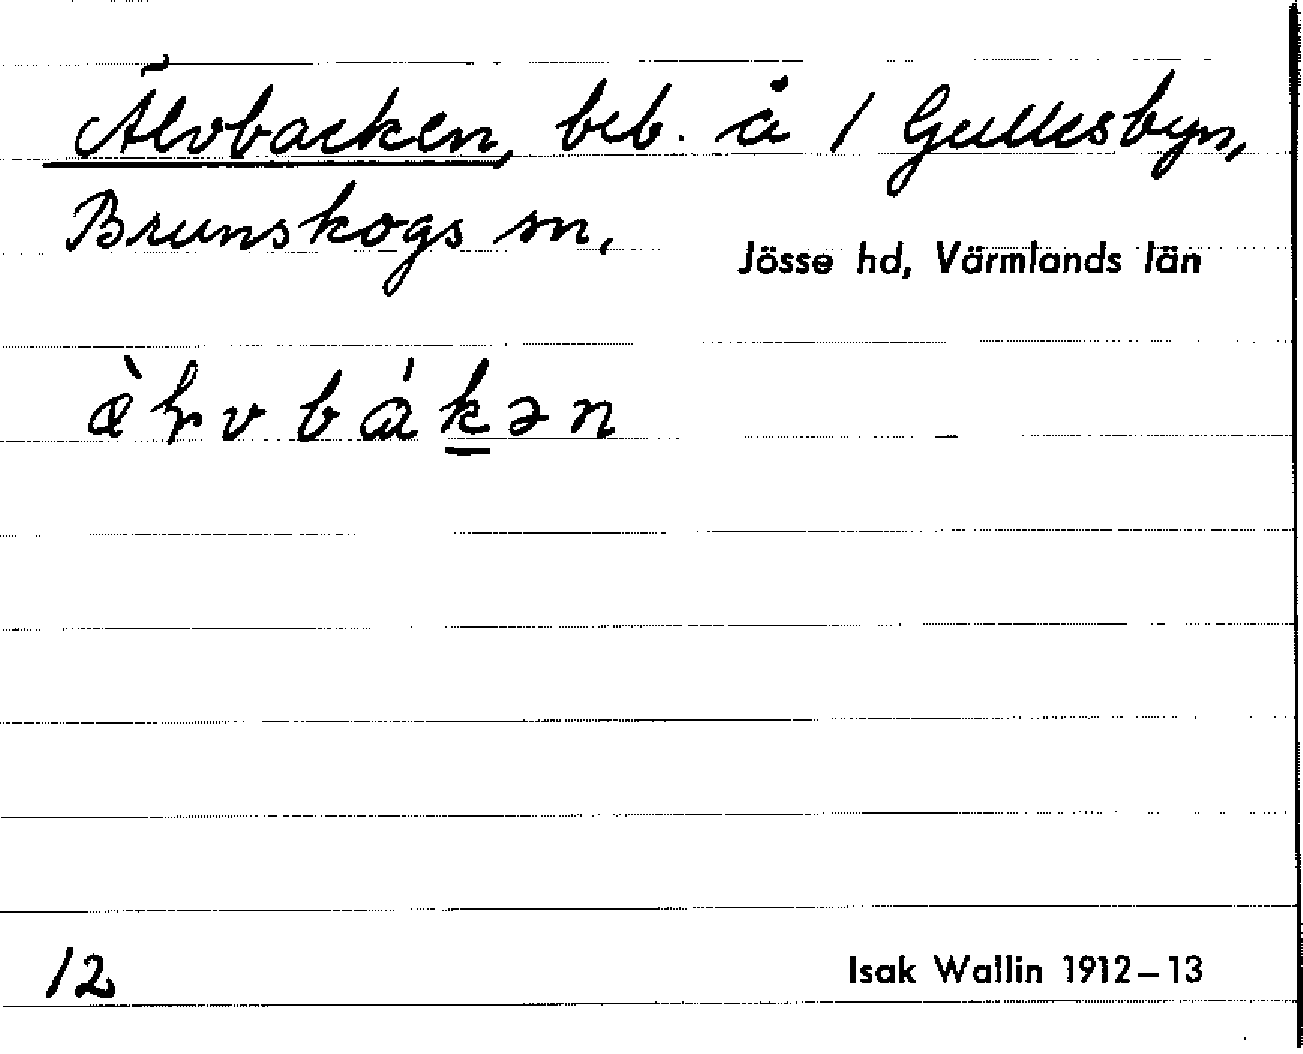 Älvbacken, beb. å 1 Gullesbyn,
Brunskogs sn,
Jösse hd, Värmlands län
æ̀ɽvbákən
12
Isak Wallin 1912–13